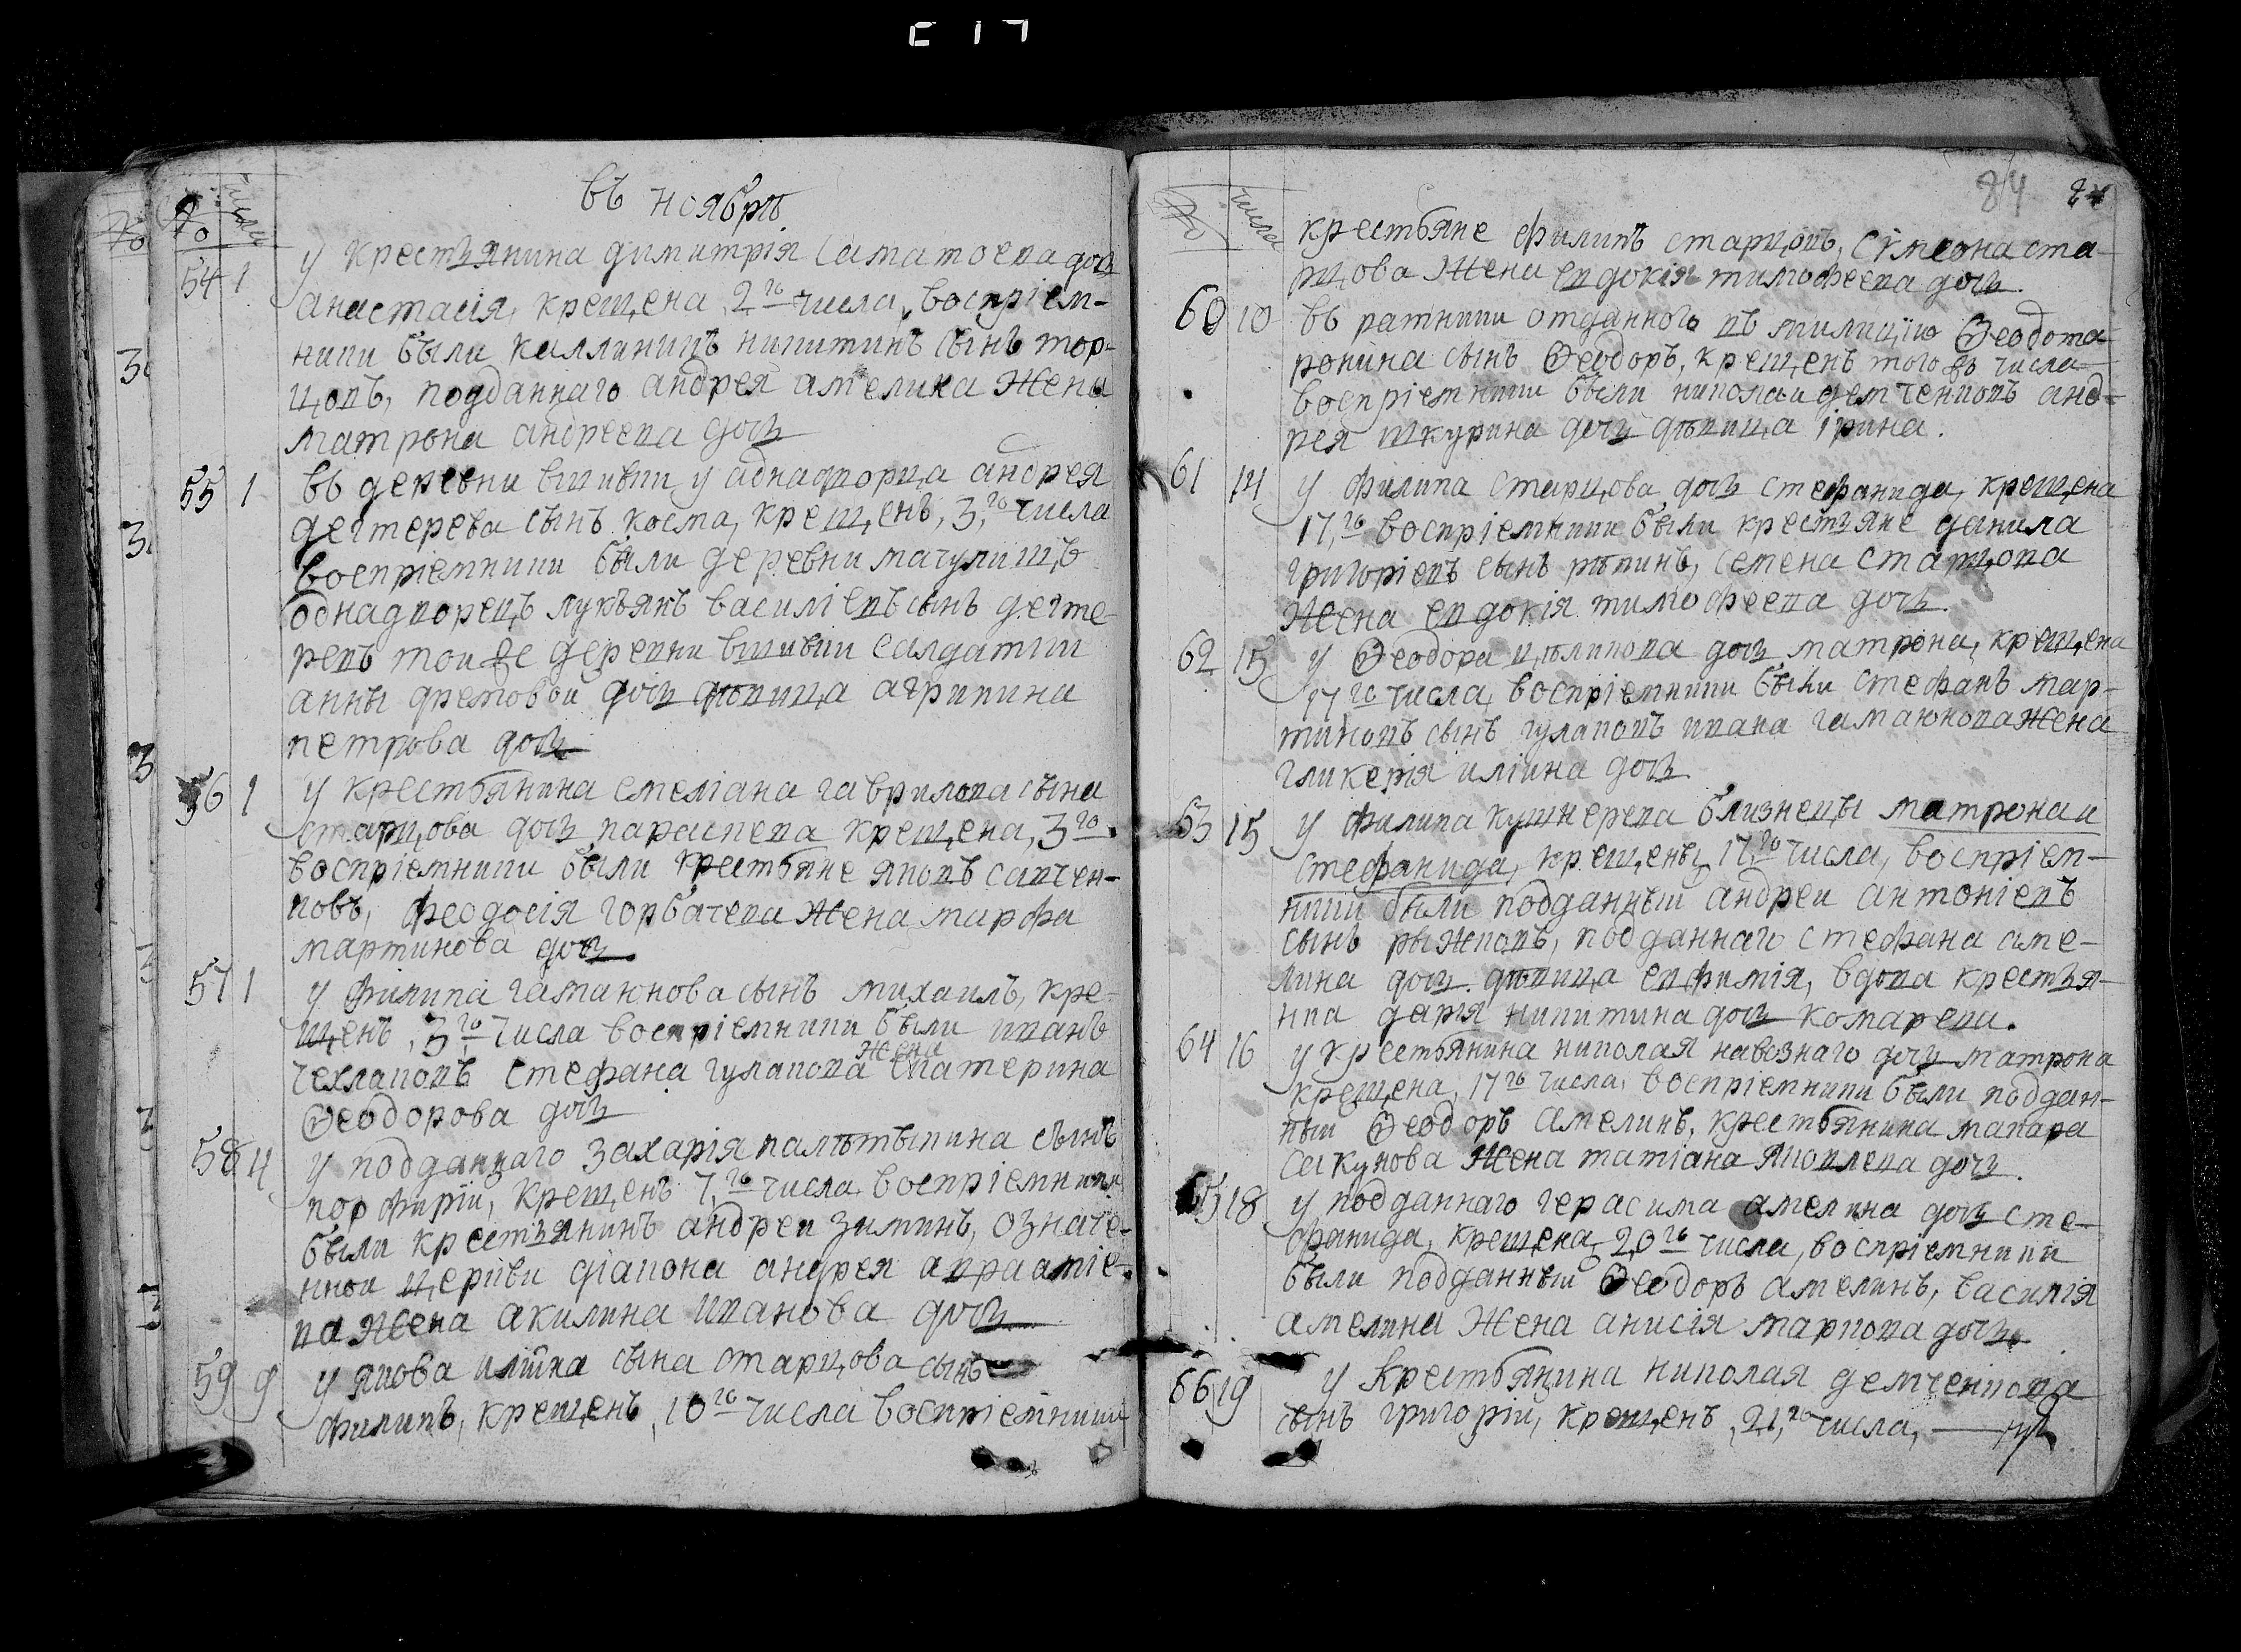 въ ноябрѣ
№ числа
54 1 у крестьянина димитрія саматоева дочь
анастасія, крещена 2го числа, воспріем-
ники были каллиникъ никитинъ сынъ
цовъ, подданнаго андрея амелина жена
матрона андреева дочь
55 1 въ деревни вшивки у аднадворца андрея
дегтерева сынъ косма, крещенъ, 3,го числа
воспріемники были деревни мачулищъ
однадворецъ лукъянъ василіевъ сынъ дегте-
ревъ той же деревни вшивки салдатки
анны фретовой дочь дѣвица агрипина
петрова дочь
56 1 у крестьянина емеліана гаврилова сына
старцова дочь параскева крещена, 3го
воспріемники были крестьяне яковъ савчен-
ковъ, феодосія горбачева жена марфа
мартинова дочь
57 1 у филипа гамаюнова сынъ михаилъ, кре-
щенъ, 3го числа воспріемники были иванъ
чехлаковъ стефана гулакова жена екатерина
Ѳеодорова дочь
58 4 у подданнаго захарія сынъ
порфирій, крещенъ 7,го числа воспріемники
были крестьянинъ андрей зиминъ, означе-
нной церкви діакона андрея аврааміе-
ва жена акилина иванова дочь
59 9 у якова иліина сына старцова сынъ
филипъ, крещенъ, 10го числа воспріемники
84
№ числа
крестьяне филипъ старцовъ, сѵмеона ста-
рцова жена евдокія тимофеева дочь.
60 10 въ ратники отданного въ милицію Ѳеодота
ронина сынъ Ѳеодоръ, крещенъ того жъ числа
воспріемники были николай демченковъ анд-
рея шкурина дочь дѣвица ірина.
61 14 у филипа старцова дочь стефанида, крещена
17,го воспріемники были крестьяне данила
григоріевъ сынъ рѣпинъ, семена старцова
жена евдокія тимофеева дочь.
62 15 у Ѳеодора цѣликова дочь матрона, крещена
17го числа, воспріемники были стефанъ мар-
тиновъ сынъ гулаковъ ивана гамаюнова жена
гликерія иліина дочь
63 15 у филипа кушнерева близнецы матрона и
стефанида, крещены, 17,го числа, воспріем-
ники были подданный андрей антоніевъ
сынъ рыжковъ, подданнаго стефана аме-
лина дочь дѣвица евфимія, вдова крестья-
нка дарія никитина дочь комарева.
64 16 у крестьянина николая навознаго дочь матрона
крещена, 17го числа, воспріемники были поддан-
ный Ѳеодоръ амелинъ, крестьянина макара
сакунова жена татіана яковлева дочь.
65 18 у подданнаго герасима амелина дочь сте-
фанида, крещена, 20го числа, воспріемники
были подданный Ѳеодоръ амелинъ, василія
амелина жена анисія маркова дочь.
66 19 у крестьянина николая демченкова
сынъ григорій, крещенъ, 21,го числа,